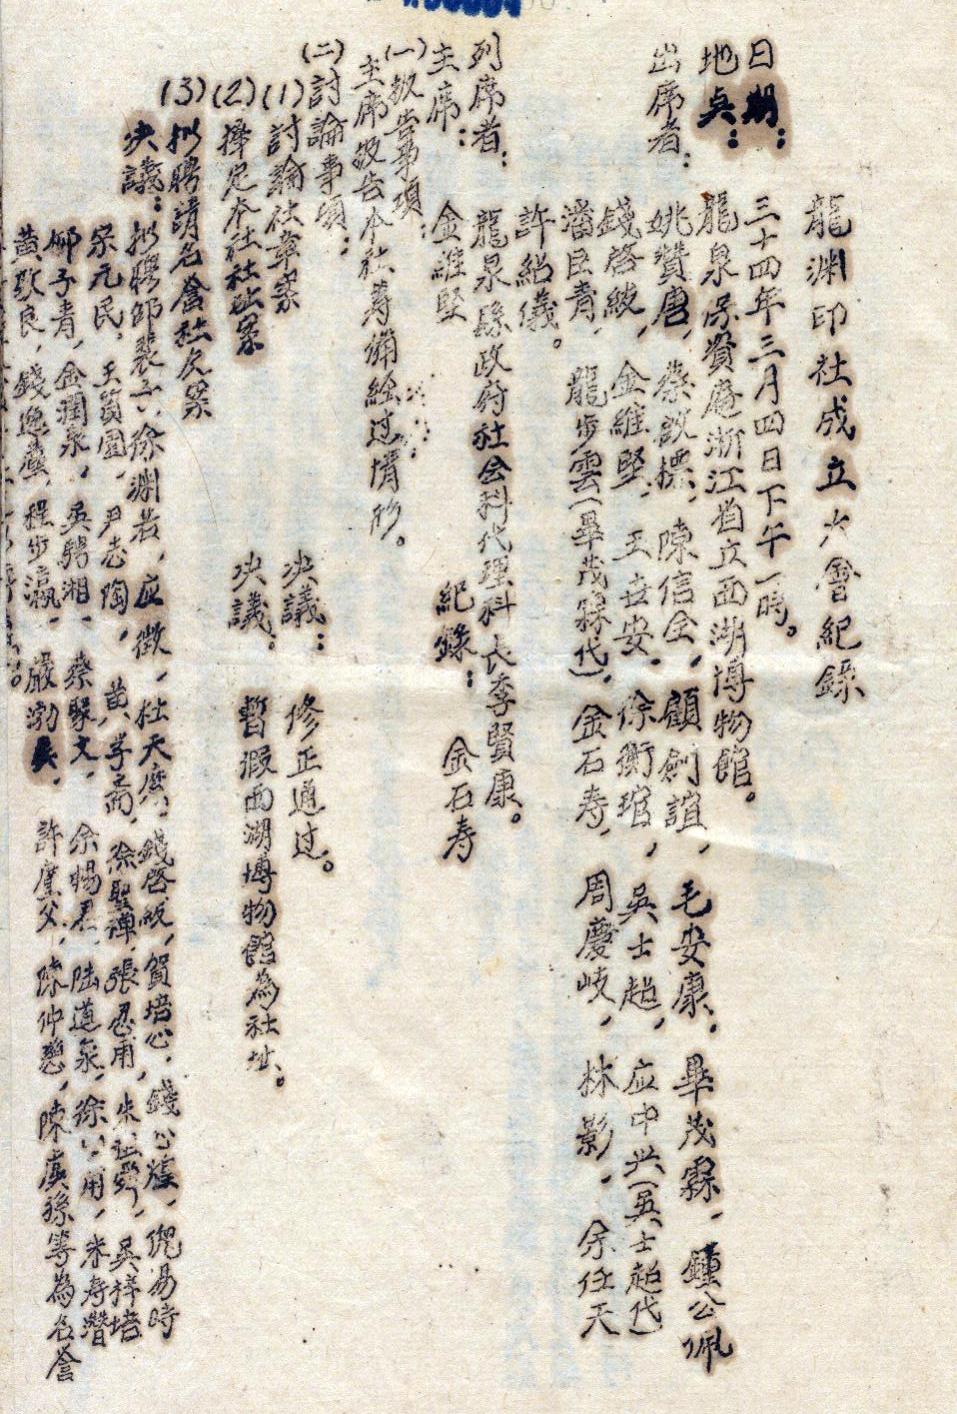 龍淵印社成立大會紀錄
日期：三十四年三月四日下午一時。
地点：龍泉保賚庵浙江省立西湖博物館。
出席者：姚贊唐，蔡啟標，陳信全，顧劍誼，毛安康，畢茂霖，鍾公佩
錢啓紱，金維堅，王世安，徐衡琯，吳士超，应中兴（吳士超代）
潘臣青，龍步雲（畢茂霖代），金石寿，周慶岐，林影，余任天
許紹儀。
列席者：龍泉縣政府社会科代理科長季賢康。
主席：金維堅 紀錄：金石寿
（一）報告事項：
主席報告本社籌備经过情形。
（二）討論事項：
（1）討論社章案 决議：修正通过。
（2）擇定本社社址案 决議。暫假西湖博物館為社址。
（3）拟聘請名誉社友案
决議：拟聘邵裴子，徐渊若，应徵，杜天縻，錢啓紱，賀培心，錢公煌，倪易時
宋元民，王蒉園，尹志陶，黃学而，徐聖禪，張忍甫，朱，吳梓培
邹子青，金潤泉，吳騁湘，蔡駿文，余暘君，陆道泉，徐用，米寿潛
黃致良，錢逸塵，程步瀛，嚴渤矣，許廑父，陳仲憩，陳虞孫等為名誉